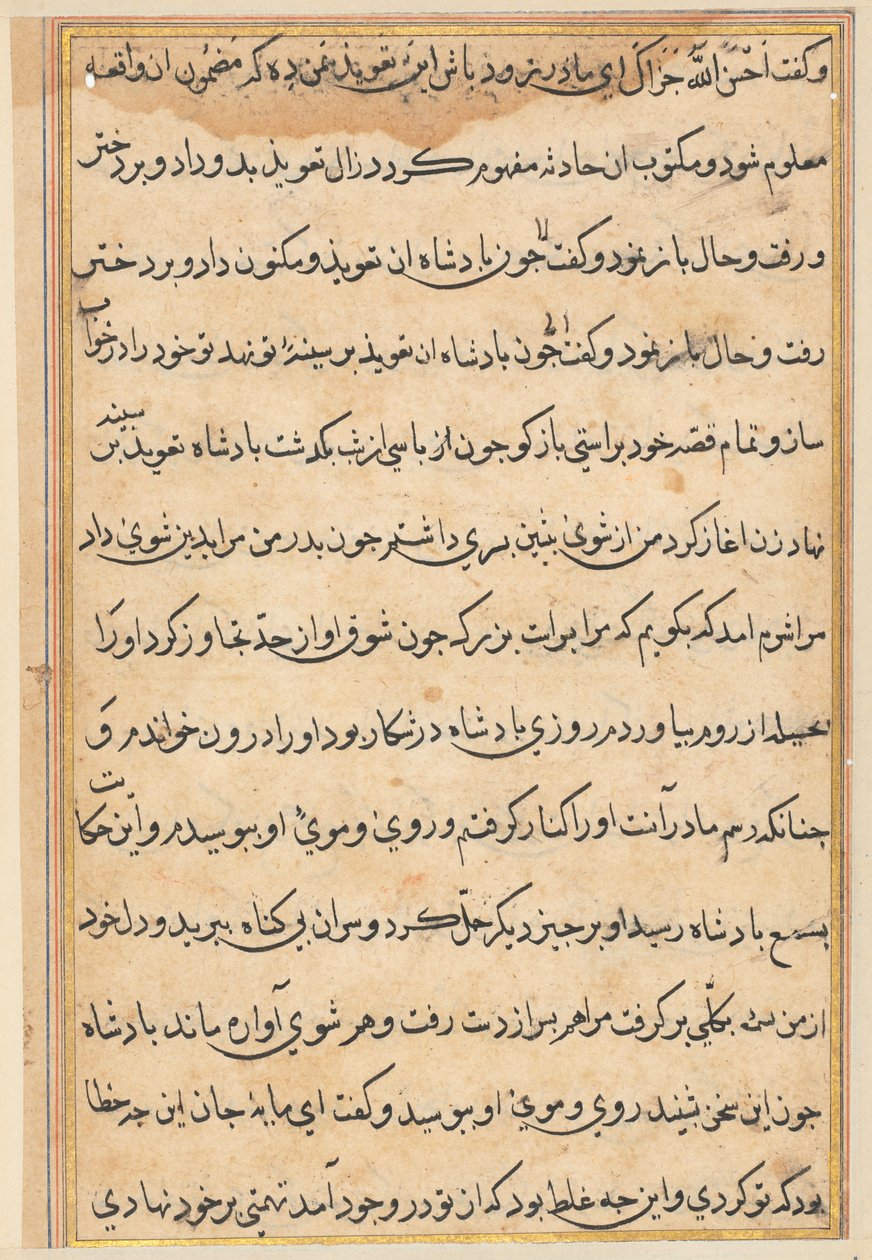 وكفت اَحْسَن اللّٰه جَزَاكَ اي مادر زود باش اين تعويذ بمن ده كه مضمون ان واقعه
معلوم شود و مكتوب ان حادثه مفهوم كردد زال تعويذ بدو داد و بر دختر
و رفت و حال باز نمود و كفت جون بادشاه ان تعويذ و مكنون داد و بر دختر
رفت و حال باز نمود و كفت جون بادشاه ان تعويذ بر سينهٔ تو نهد تو خود را در خواب
ساز و تمام قصّه خود براستي باز كو جون از باسي از شب بكذشت بادشاه تعويذ بر سينه
نهاد زن اغاز كرد من از شوئ بشين بسري داشتم جون بدر من مرا بدين شوئ داد
مرا شرم امد كه بكويم كه مرا بسر است بزرك جون شوق او از حدّ تجاوز كرد او رَا
بحيله از روم بياوردم روزي بادشاه در شكار بود او را درون خواندم وَ
جنانكه رسم مادر آنست او را كنار كرفتم و روئ و موئ او ببوسيدم و اين حكايت
بسمع بادشاه رسيد او بر جيز ديكر حلّ كرد و سر ان بي كناه ببريد و دل خود
از من بكلّي بر كرفت مرا هم بسر از دست رفت و هم شوي آواره ماند بادشاه
جون اين سخن بشنيد روي و موئ او ببوسيد و كفت اي مايهٔ جان اين جه خطا
بود كه تو كردي و اين جه غلط بود كه از تو در وجود آمد تهمتي بر خود نهادي